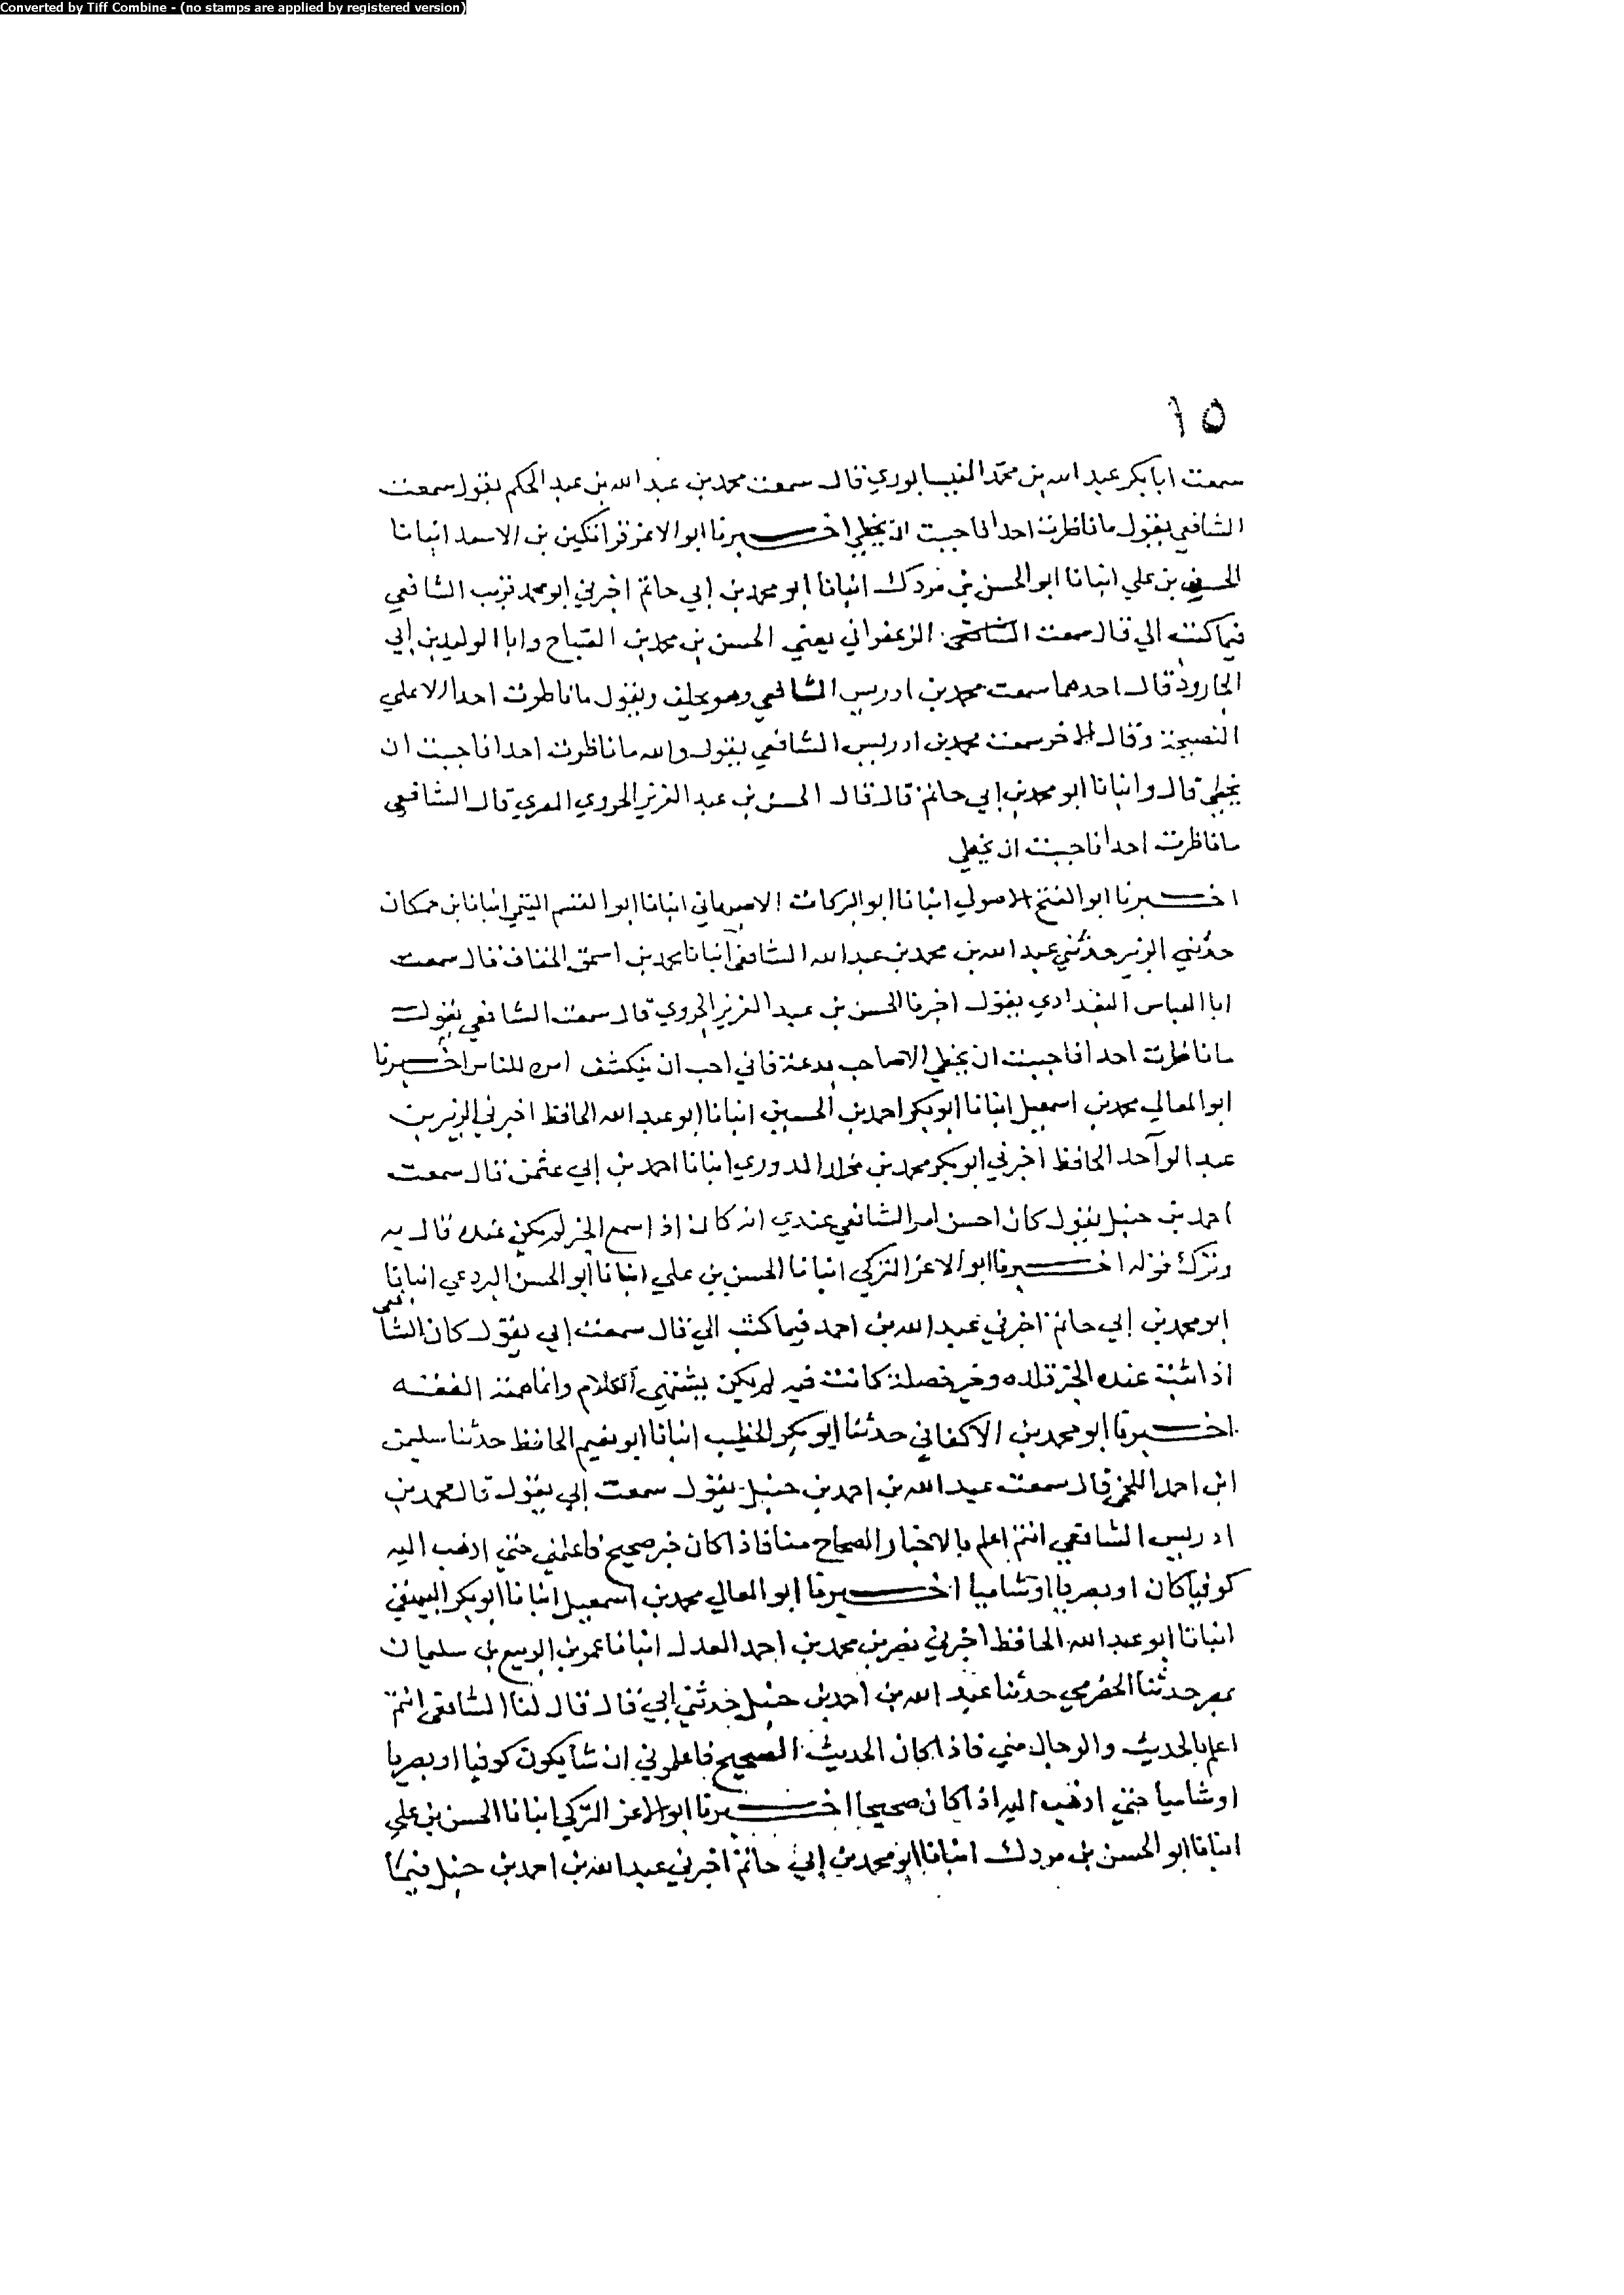 Converted by Tiff Combine - (no stamps are applied by registered version)
١٥
سمعت ابا بكر عبد الله بن محمد النيسابوري قال سمعت محمد بن عبد الله بن عبد الحكم يقول سمعت
الشافعي يقول ما ناظرت احدا فاحببت ان يخطي اخبرنا ابو الاعز قراتكين بن الاسعد انبانا
الحسن بن علي انبانا ابو الحسن بن مردك انبانا ابو محمد بن ابي حاتم اخبرني ابو محمد قريب الشافعي
فيما كتب الي قال سمعت الزعفراني يعني الحسن بن محمد بن الصباح وابا الوليد بن ابي
الجارود قال احدهما سمعت محمد بن ادريس الشافعي وهو يحلف ويقول ما ناظرت احدا الا علي
النصيحة وقال الاخر سمعت محمد بن ادريس الشافعي يقول والله ما ناظرت احدا فاحببت ان
يخطي قال وانبانا ابو محمد بن ابي حاتم قال قال الحسن بن عبد العزيز الجروي المصري قال الشافعي
ما ناظرت احدا فاحببت ان يخطي
اخبرنا ابو الفتح الاصولي انبانا ابو البركات الاصبهاني انبانا ابو القسم انبانا بن حمكان
حدثني الزبير حدثني عبد الله بن محمد بن عبد الله الشافعي انبانا محمد بن اسحق الخفاف قال سمعت
ابا العباس البغدادي يقول اخبرنا الحسن بن عبد العزيز الجروي قال سمعت الشافعي يقول
ما ناظرت احدا فاحببت ان يخطي الا صاحب بدعة فاني احب ان ينكشف امره للناس اخبرنا
ابو المعالي محمد بن اسمعيل انبانا ابو بكر احمد بن الحسين انبانا ابو عبد الله الحافظ اخبرني الزبير بن
عبد الواحد الحافظ اخبرني ابو بكر محمد بن مخلد الدوري انبانا احمد بن ابي عثمن قال سمعت
احمد بن حنبل يقول كان احسن امر الشافعي عندي انه كان اذا سمع الخبر لم يكن عنده قال به
وترك قوله اخبرنا ابو الاعز التركي انبانا الحسن بن علي انبانا ابو الحسن البردعي انبانا
ابو محمد بن ابي حاتم اخبرني عبد الله بن احمد فيما كتب الي قال سمعت ابي يقول كان الشافعي
اذا ثبت عنده الخبر قلده وخير خصلة كانت فيه لم يكن يشتهي الكلام وانما همته الفقه
اخبرنا ابو محمد بن الاكفاني حدثنا ابو بكر الخطيب انبانا ابو نعيم الحافظ حدثنا سليمن
ابن احمد اللخمي قال سمعت عبد الله بن احمد بن حنبل يقول سمعت ابي يقول قال محمد بن
ادريس الشافعي انتم اعلم بالاخبار الصحاح منا فاذا كان خبر صحيح فاعلمني حتي اذهب اليه
كوفيا كان او بصريا او شاميا اخبرنا ابو المعالي محمد بن اسمعيل انبانا ابو بكر البيهقي
انبانا ابو عبد الله الحافظ اخبرني نصر بن محمد بن احمد العدل انبانا عمر بن الربيع بن سليمان
بمصر حدثنا الحضرمي حدثنا عبد الله بن احمد بن حنبل حدثني ابي قال قال لنا الشافعي انتم
اعلم بالحديث والرجال مني فاذا كان الحديث الصحيح فاعلموني ان شا يكون كوفيا او بصريا
او شاميا حتي اذهب اليه اذا كان صحيحا اخبرنا ابو الاعز التركي انبانا الحسن بن علي
انبانا ابو الحسن بن مردك انبانا ابو محمد بن ابي حاتم اخبرني عبد الله بن احمد بن حنبل فيما